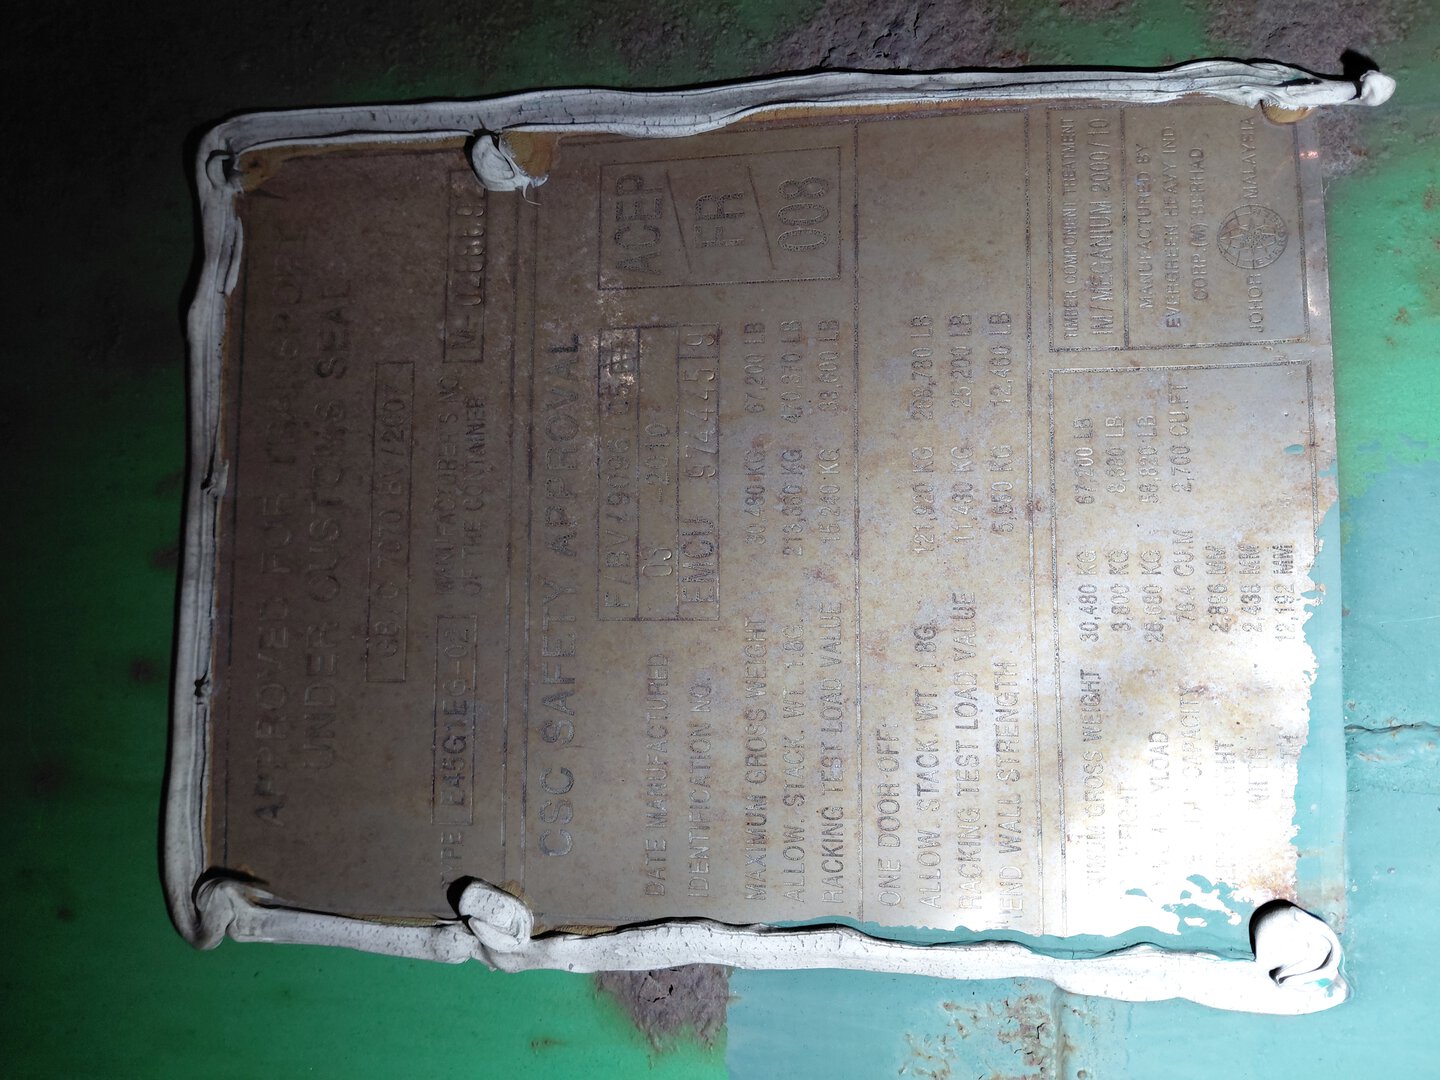 APPROVED FOR TRANSPORT
UNDER CUSTOMS SEAL
BV/2007
TYPE E45G1EG-02 MANUFACTURER'S NO.
OF THE CONTAINER
CSC SAFETY APPROVAL
F/BV/9096/
DATE MANUFACTURED
IDENTIFICATION NO. EMCU 974451 9
ACEP
FR
008
MAXIMUM GROSS WEIGHT 30,480 KG 67,200 LB
ALLOW. STACK. WT. 1.8G. 213,360 KG 470,370 LB
RACKING TEST LOAD VALUE 15,240 KG 33,600 LB
ONE DOOR OFF:
ALLOW. STACK. WT. 1.8G. 121,920 KG 268,780 LB
RACKING TEST LOAD VALUE 11,430 KG 25,200 LB
END WALL STRENGTH 5,650 KG 12,460 LB
GROSS WEIGHT 30,480 KG 67,200 LB
3,800 KG 8,380 LB
26,680 KG 58,820 LB
CAPACITY 76.4 CU.M 2,700 CU.FT
2,896 MM
2,438 MM
12,192 MM
TIMBER COMPONENT TREATMENT
IM/MEGANIUM 2000/10
MANUFACTURED BY
EVERGREEN HEAVY IND.
CORP (M) BERHAD
JOHOR MALAYSIA